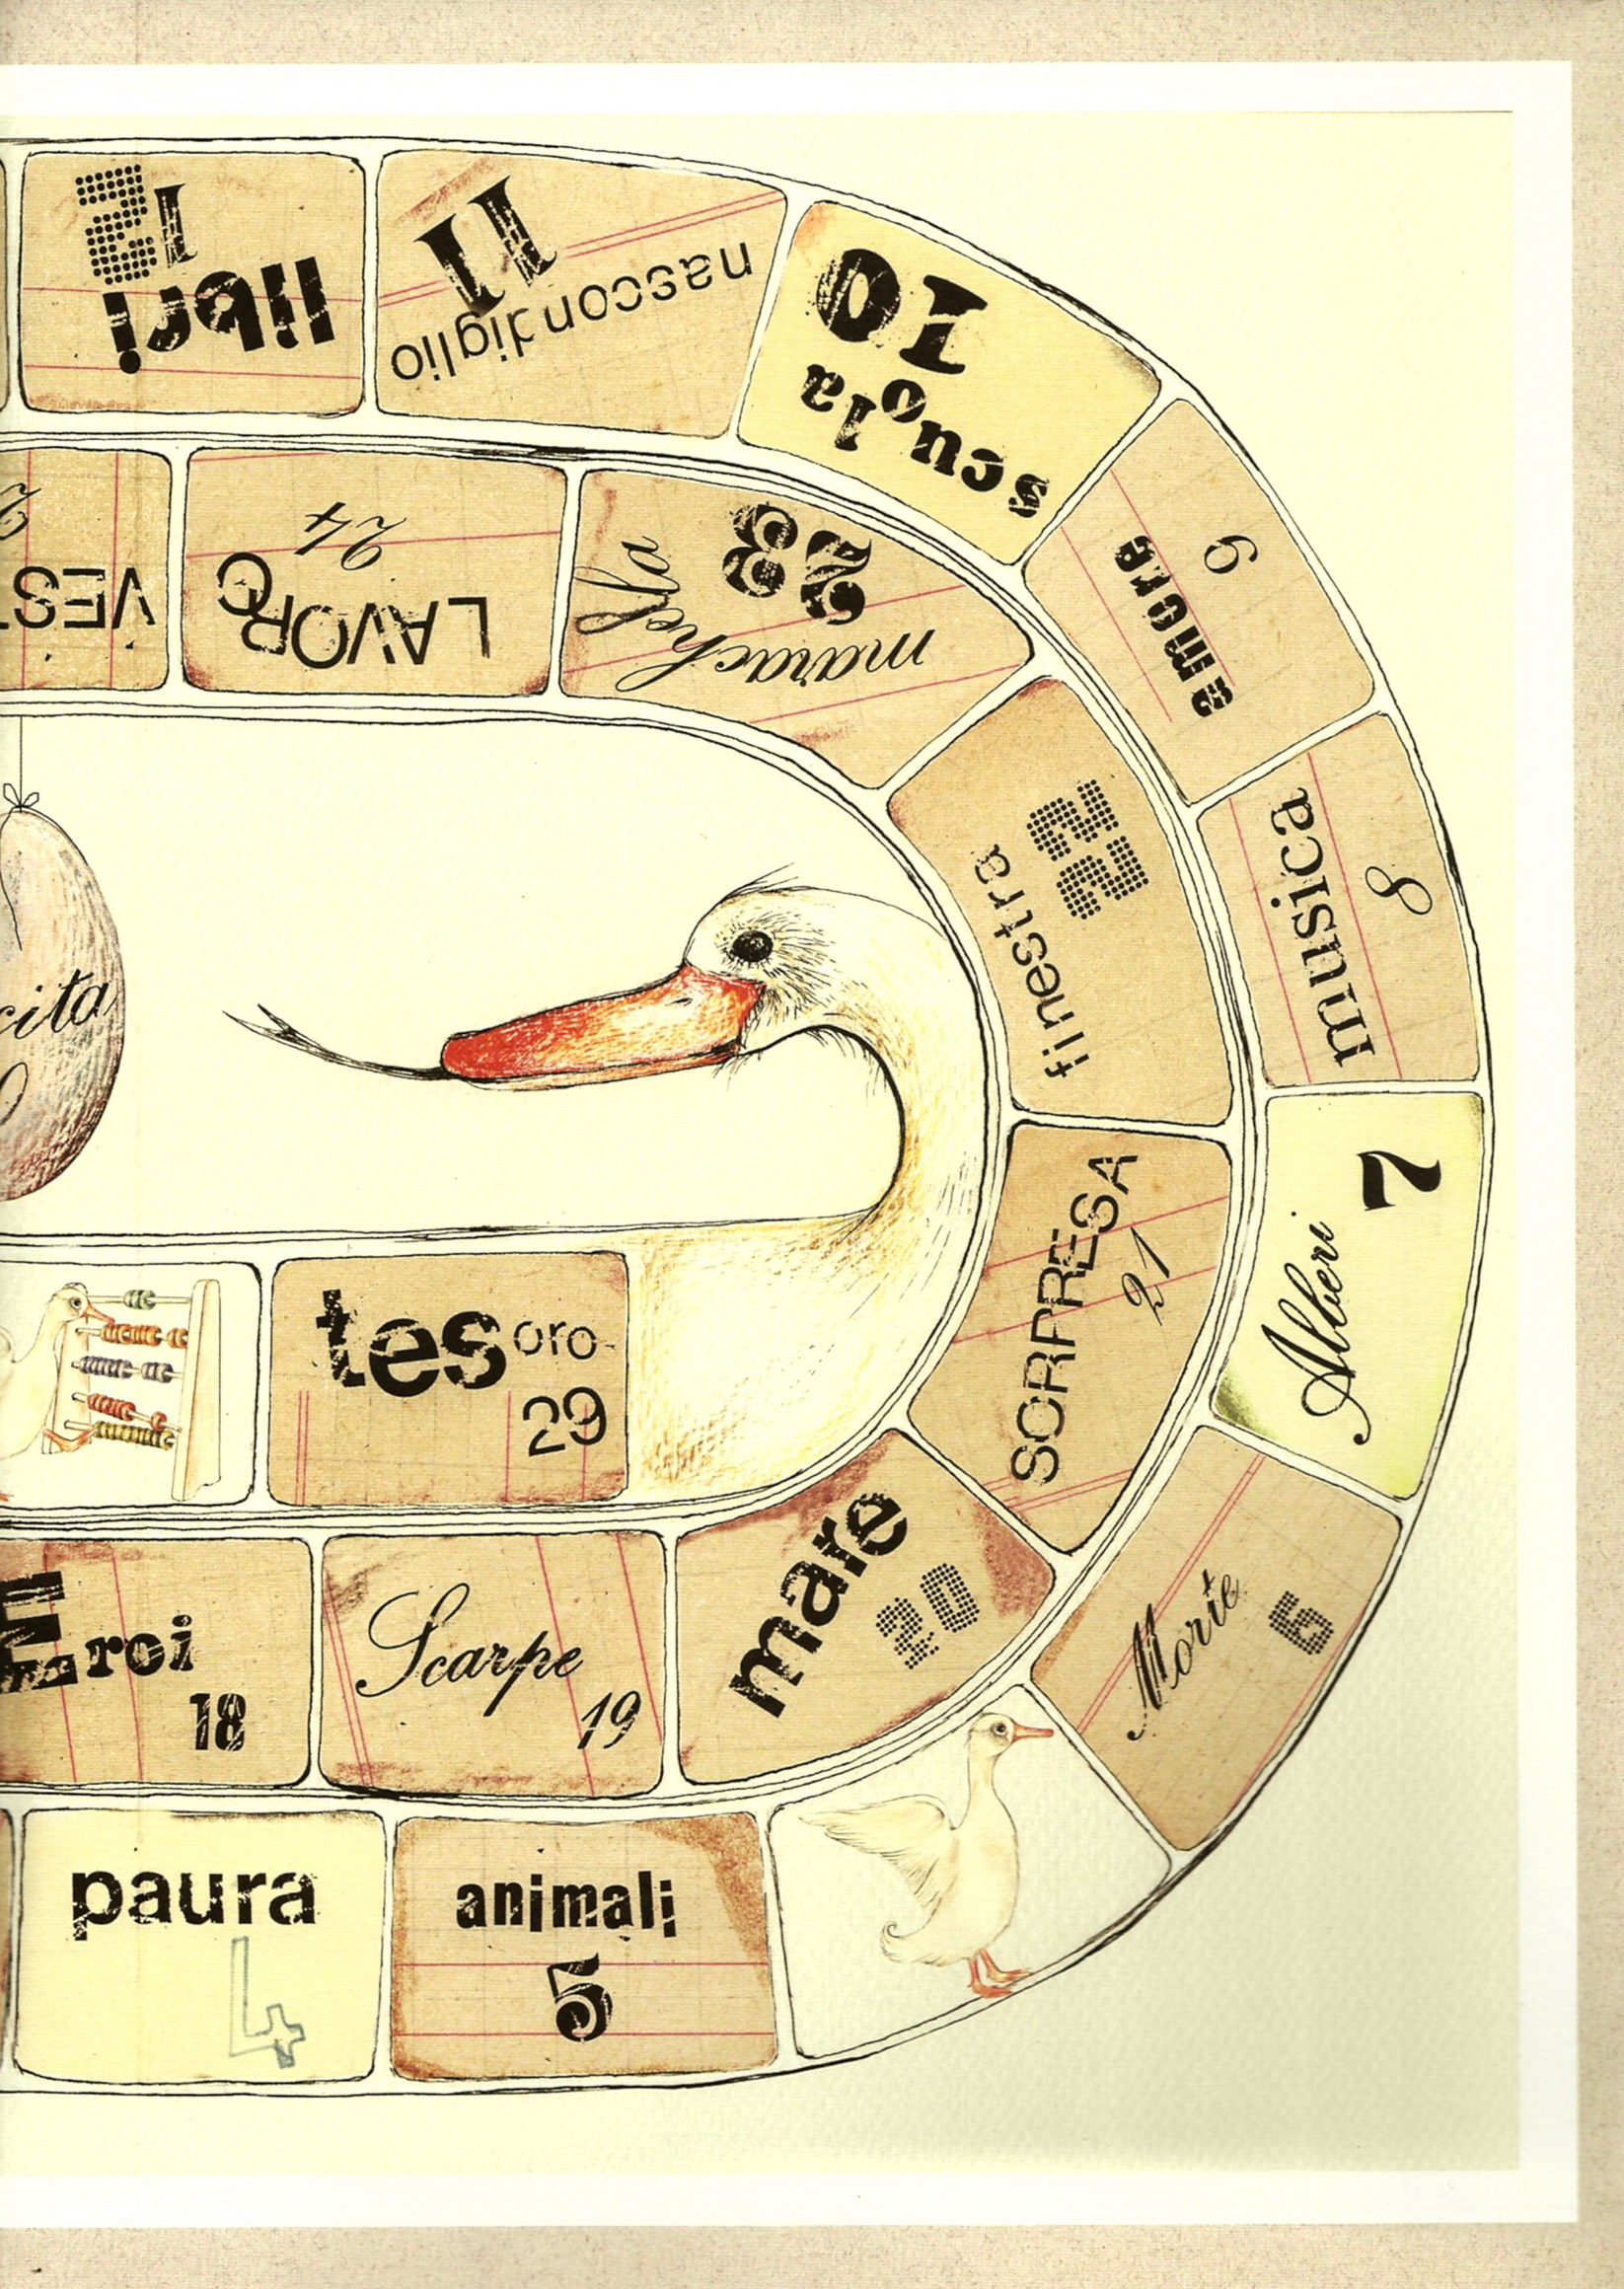 paura
4
animali
5
Morte
6
Alberi
7
musica
8
amore
9
scuola
10
nascondiglio
11
libri
12
Eroi
18
Scarpe
19
mare
20
SORPRESA
21
finestra
22
marachella
23
LAVORO
24
VES
tesoro
29
cita